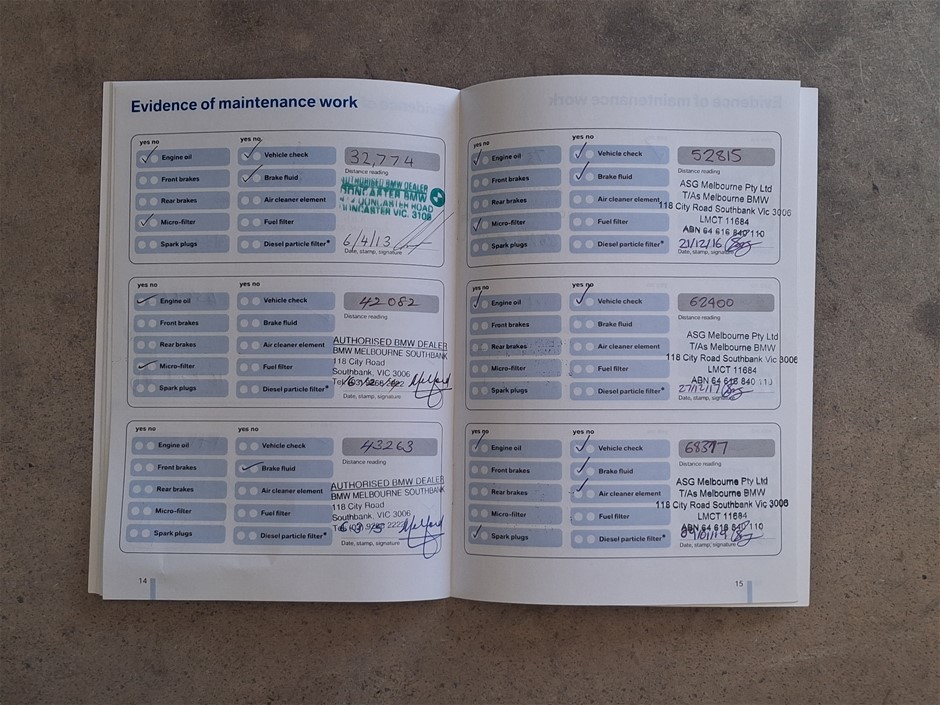 Evidence of maintenance work
yes no
yes no
Engine oil
Vehicle check
32,774
Distance reading
Front brakes
Brake fluid
AUTHORISED BMW DEALER
DONCASTER BMW
Rear brakes
Air cleaner element
DONCASTER ROAD
DONCASTER VIC. 3108
Micro-filter
Fuel filter
Spark plugs
Diesel particle filter*
6/4/13
Date, stamp, signature
yes no
yes no
Engine oil
Vehicle check
42082
Distance reading
Front brakes
Brake fluid
AUTHORISED BMW DEALER
BMW MELBOURNE SOUTHBANK
Rear brakes
Air cleaner element
118 City Road
Southbank, VIC 3006
Micro-filter
Fuel filter
Spark plugs
Diesel particle filter*
Date, stamp, signature
yes no
yes no
Engine oil
Vehicle check
43263
Distance reading
Front brakes
Brake fluid
AUTHORISED BMW DEALER
BMW MELBOURNE SOUTHBANK
Rear brakes
Air cleaner element
118 City Road
Southbank, VIC 3006
Micro-filter
Fuel filter
Spark plugs
Diesel particle filter*
Date, stamp, signature
14
yes no
yes no
Engine oil
Vehicle check
52815
Distance reading
Front brakes
Brake fluid
ASG Melbourne Pty Ltd
T/As Melbourne BMW
Rear brakes
Air cleaner element
118 City Road Southbank Vic 3006
LMCT 11684
Micro-filter
Fuel filter
ABN 64 616 840 110
Spark plugs
Diesel particle filter*
21/12/16
Date, stamp, signature
yes no
yes no
Engine oil
Vehicle check
62400
Distance reading
Front brakes
Brake fluid
ASG Melbourne Pty Ltd
T/As Melbourne BMW
Rear brakes
Air cleaner element
118 City Road Southbank Vic 3006
LMCT 11684
Micro-filter
Fuel filter
ABN 64 616 840 110
Spark plugs
Diesel particle filter*
27/12/17
Date, stamp, signature
yes no
yes no
Engine oil
Vehicle check
68397
Distance reading
Front brakes
Brake fluid
ASG Melbourne Pty Ltd
T/As Melbourne BMW
Rear brakes
Air cleaner element
118 City Road Southbank Vic 3006
LMCT 11684
Micro-filter
Fuel filter
ABN 64 616 840 110
Spark plugs
Diesel particle filter*
09/01/19
Date, stamp, signature
15